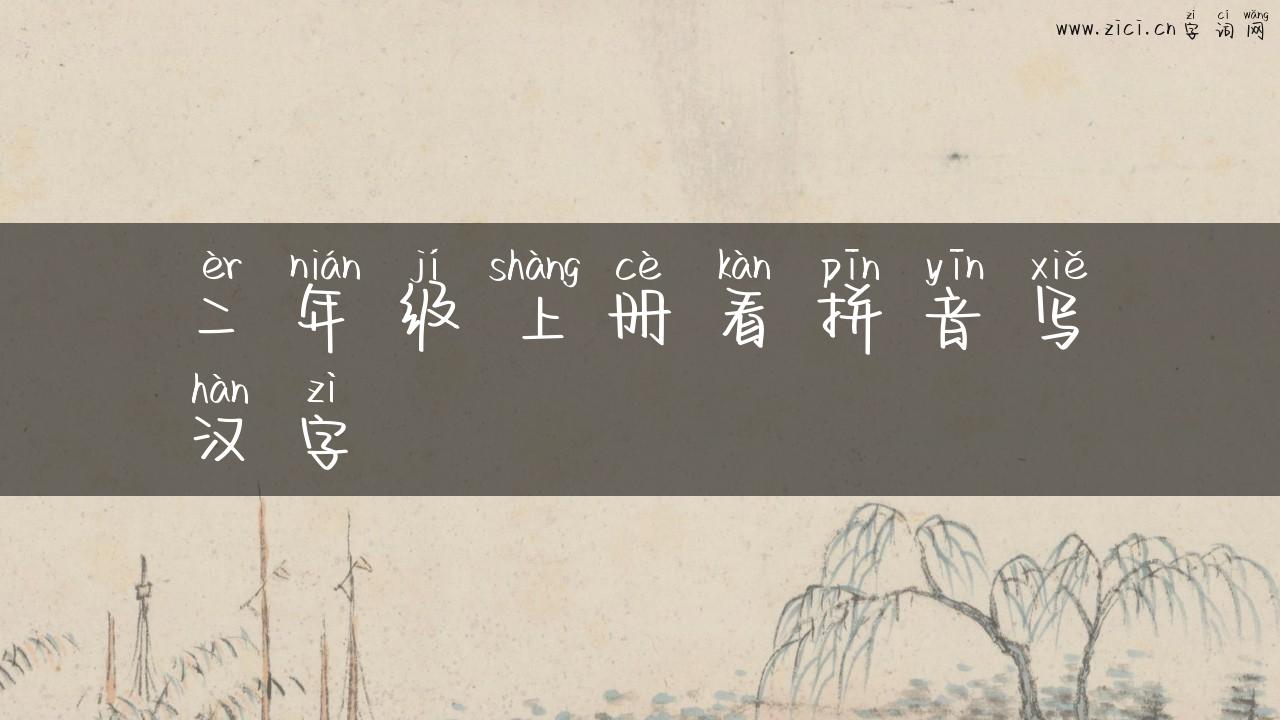 zì cí wǎng
www.zici.cn 字词网
èr nián jí shàng cè kàn pīn yīn xiě
二年级上册看拼音写
hàn zì
汉字